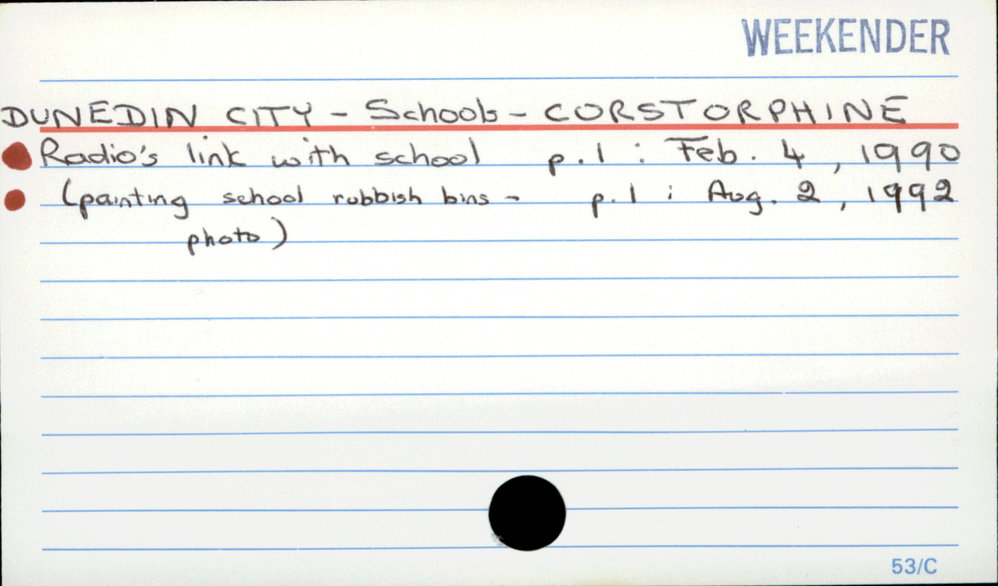 WEEKENDER
DUNEDIN CITY - Schools - CORSTORPHINE
Radio's link with school p.1 : Feb. 4, 1990
(painting school rubbish bins - p.1 : Aug. 2, 1992
photo)
53/C